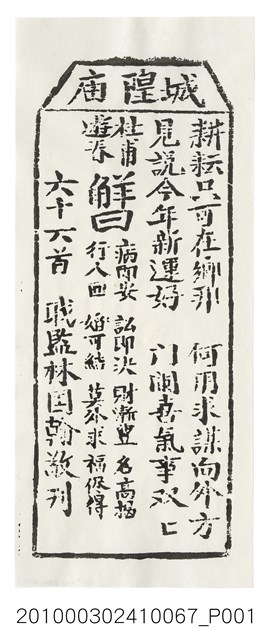 城隍庙
耕耘只可在鄉邦 何用求謀向外方
見說今年新運好 門闌喜氣事双匕
杜甫遊春
解曰
病即安 訟即決 財漸豊 名高揭
行人回 婚可結 莫外求 福保得
六十六首 戢監林国翰敬刊
201000302410067_P001